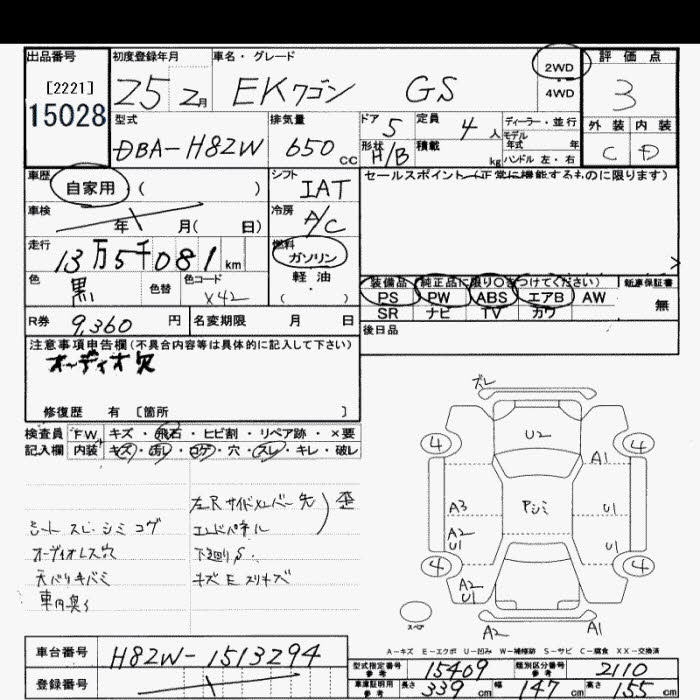 出品番号 初度登録年月 車名・グレード 評価点
[2221]
15028
25 2月 EKワゴン GS 2WD 4WD 3
型式 排気量 ドア 5 定員 4 人 ディーラー・並行 外装 内装
DBA-H82W 650 cc 形状 H/B 積載 kg モデル年式 年 ハンドル 左・右 C D
車歴 自家用 ( ) シフト IAT セールスポイント(正常に機能するものに限ります)
車検 年 月( 日) 冷房 A/C
走行 13万5千081 km 燃料 ガソリン
軽油
( )
色 黒 色替 色コード X42
装備品 純正品に限り○をつけてください) 新車保証書
PS PW ABS エアB AW 無
SR ナビ TV カワ
R券 9,360 円 名変期限 月 日 後日品
注意事項申告欄(不具合内容等は具体的に記入して下さい)
オーディオ欠
修復歴 有 [箇所 ]
検査員 FW キズ・飛石・ヒビ割・リペア跡・×要
記入欄 内装 キズ・汚レ・コゲ・穴・スレ・キレ・破レ
左Rサイドメンバー先 歪
シート スレ シミ コゲ エンドパネル
オーディオレス穴 下廻りS
天バリキバミ キズ E スリキズ
車内臭う
ズレ
U2
4 4
A1
A3 Pシミ U1
A2
U1 U1
4 4
A2
U1
スペア
A2 A1
A-キズ E-エクボ U-凹み W-補修跡 S-サビ C-腐食 XX-交換済
車台番号 H82W-1513294
登録番号
型式指定番号 参考 15409 類別区分番号 参考 2110
車庫証明用 参考 長さ 339 cm 幅 147 cm 高さ 155 cm